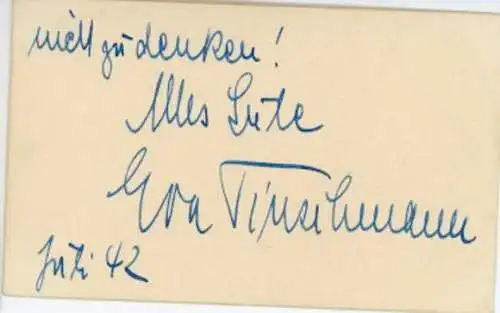 nicht zu denken!
Alles Gute
Eva Tinschmann
Juli 42